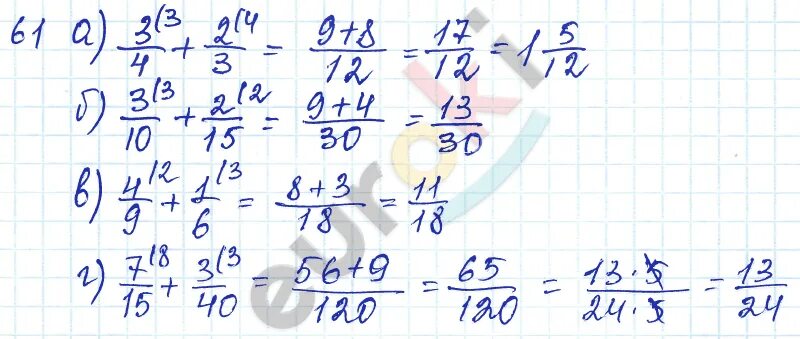 61 а) 3/4 (3 + 2/3 (4 = (9+8)/12 = 17/12 = 1 5/12
б) 3/10 (3 + 2/15 (2 = (9+4)/30 = 13/30
в) 4/9 (2 + 1/6 (3 = (8+3)/18 = 11/18
г) 7/15 (8 + 3/40 (3 = (56+9)/120 = 65/120 = (13·5)/(24·5) = 13/24
euroki